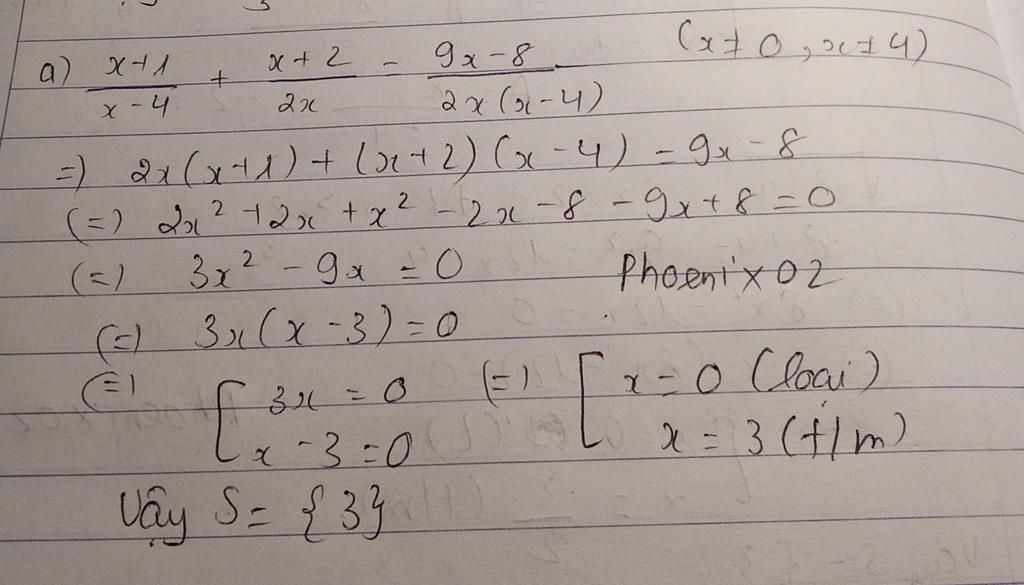 a) \frac{x+1}{x-4} + \frac{x+2}{2x} = \frac{9x-8}{2x(x-4)} (x≠0, x≠4)
=) 2x(x+1) + (x+2)(x-4) = 9x-8
(=) 2x² + 2x + x² - 2x - 8 - 9x + 8 = 0
(=) 3x² - 9x = 0 Phoenix02
(=) 3x(x-3) = 0
(=) [ 3x = 0 (=) [ x = 0 (loại)
x - 3 = 0 x = 3 (t/m)
Vậy S = {3}